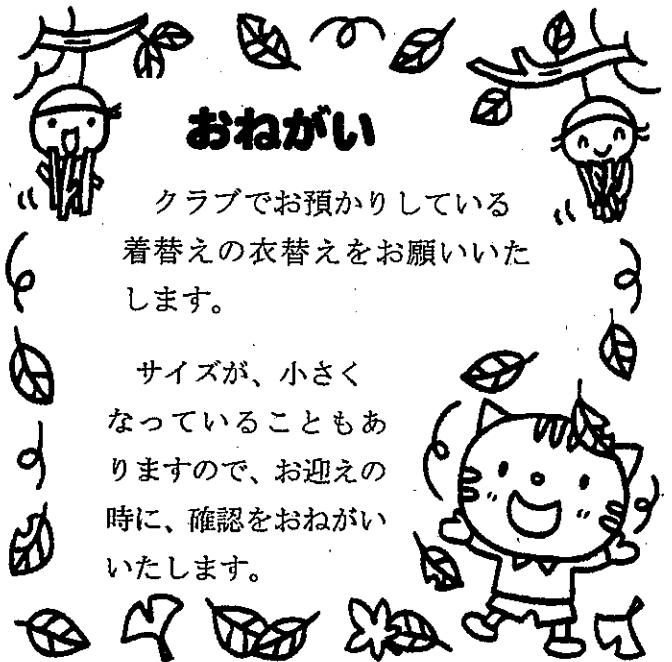 おねがい
クラブでお預かりしている
着替えの衣替えをお願いいた
します。
サイズが、小さく
なっていることもあ
りますので、お迎えの
時に、確認をおねがい
いたします。